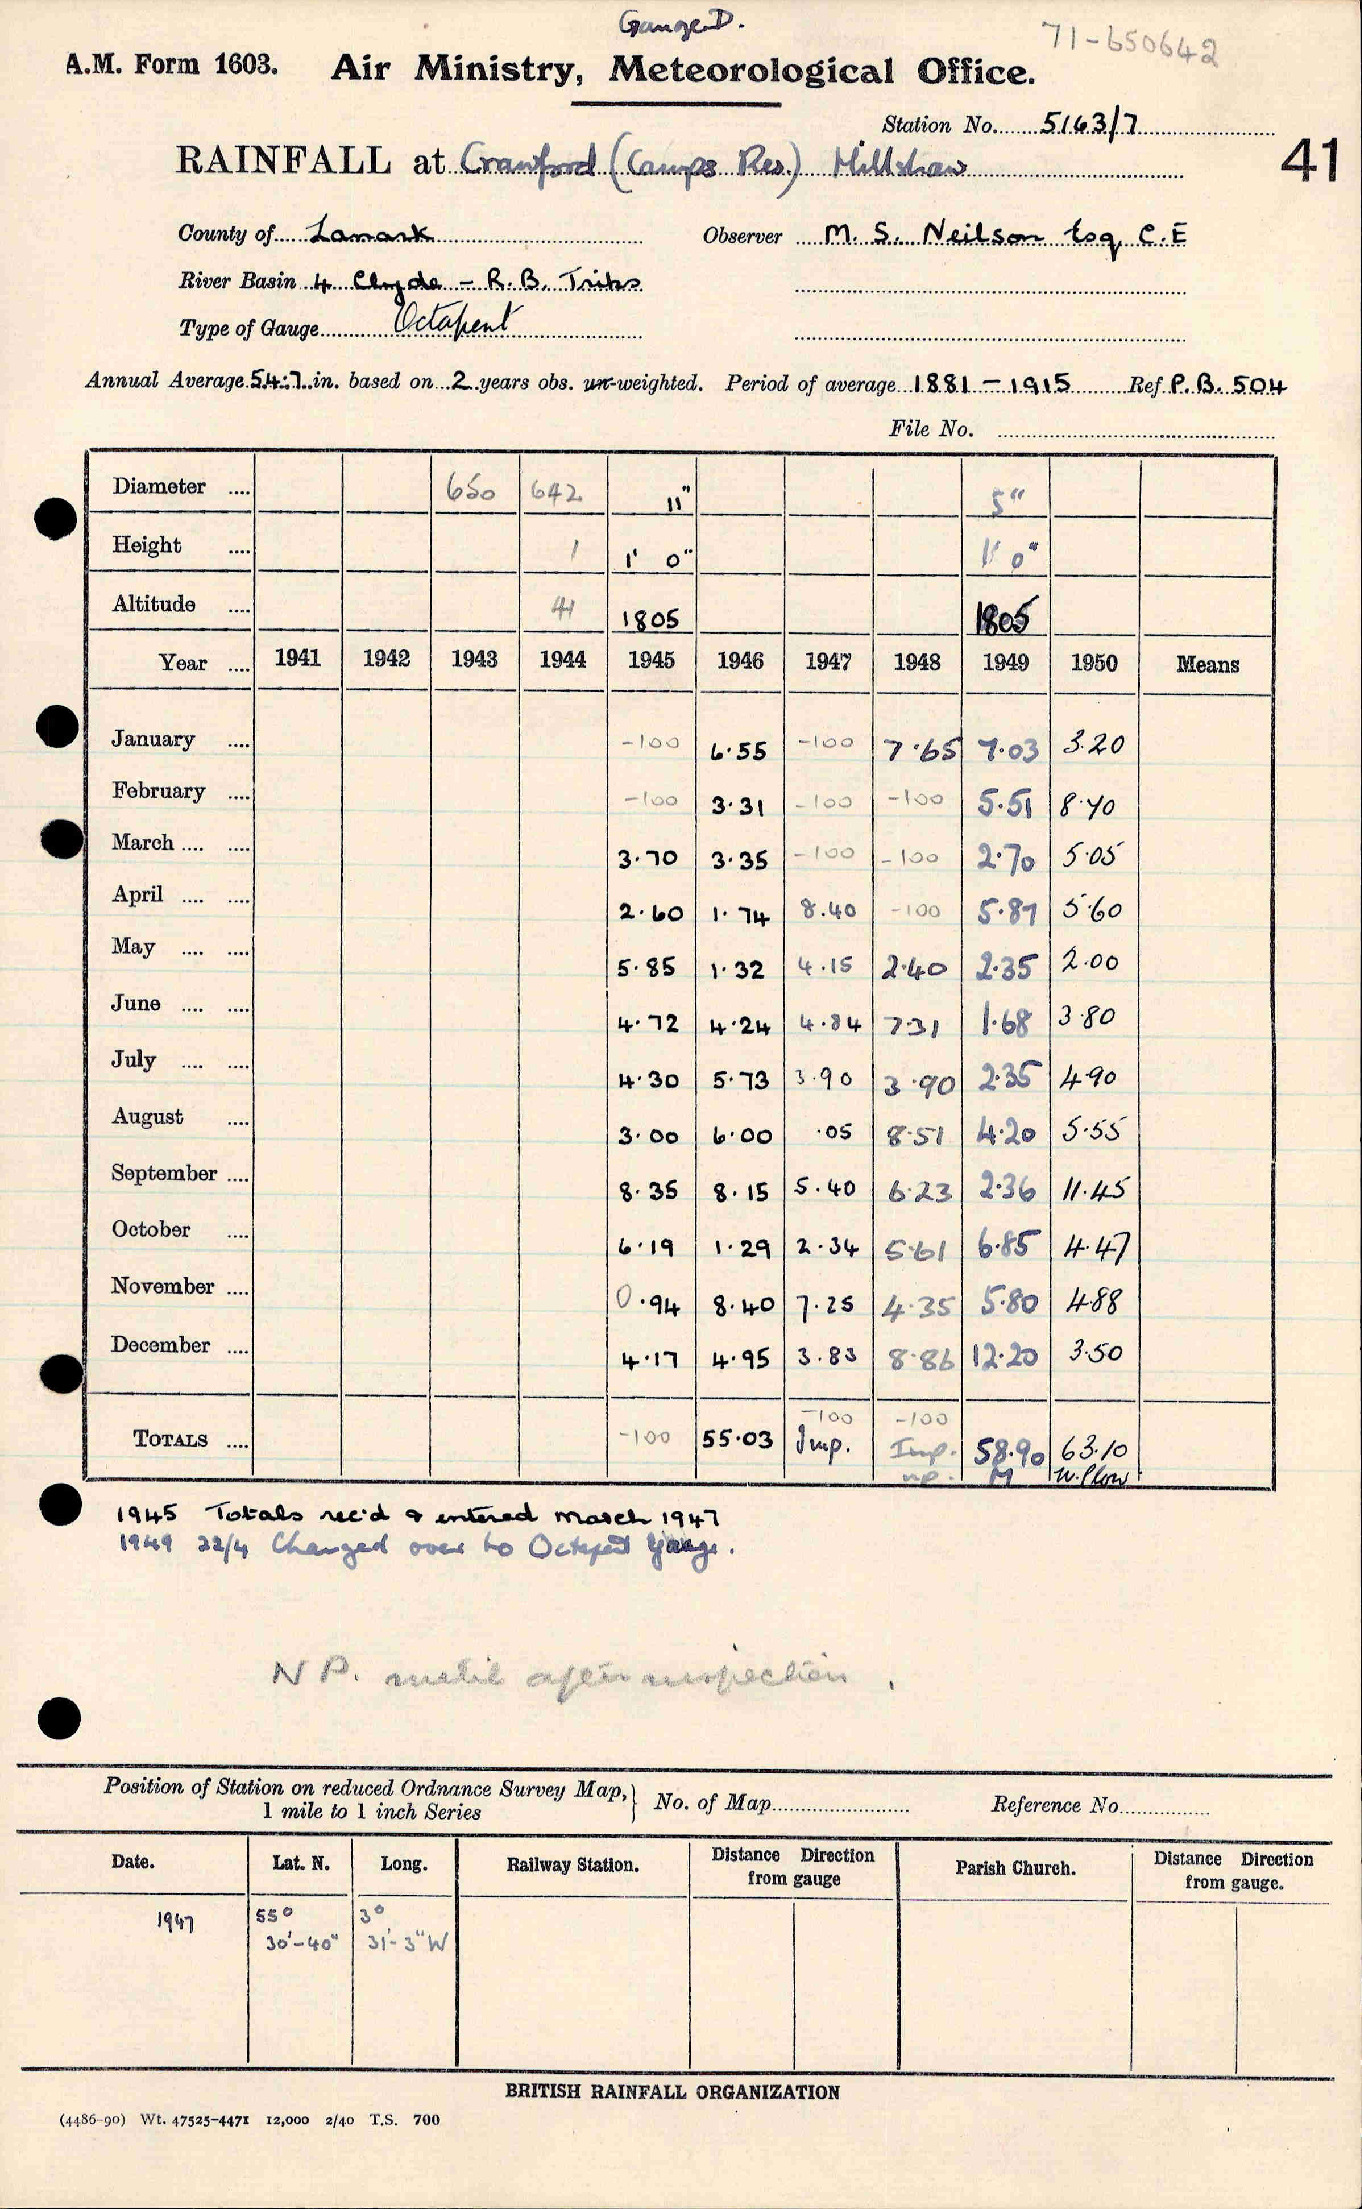 Gauge D.
71-650642
A.M. Form 1603. Air Ministry, Meteorological Office.
Station No. 5163/7
41
RAINFALL at Crawford (Camps Res.) Hillshaw
County of Lanark Observer M. S. Neilson Esq C.E
River Basin 4 Clyde - R.B. Tribs
Type of Gauge Octapent
Annual Average 54.7 in. based on 2 years obs. un-weighted. Period of average 1881 - 1915 Ref P.B. 504
File No.
Diameter .... 650 642 11" 5"
Height .... 1 1' 0" 1' 0"
Altitude .... 41 1805 1805
Year .... 1941 1942 1943 1944 1945 1946 1947 1948 1949 1950 Means
January .... -100 6.55 -100 7.65 7.03 3.20
February .... -100 3.31 -100 -100 5.51 8.70
March .... .... 3.70 3.35 -100 -100 2.70 5.05
April .... .... 2.60 1.74 8.40 -100 5.87 5.60
May .... .... 5.85 1.32 4.15 2.40 2.35 2.00
June .... .... 4.72 4.24 4.84 7.31 1.68 3.80
July .... .... 4.30 5.73 3.90 3.90 2.35 4.90
August .... 3.00 6.00 .05 8.51 4.20 5.55
September .... 8.35 8.15 5.40 6.23 2.36 11.45
October .... 6.19 1.29 2.34 5.61 6.85 4.47
November .... 0.94 8.40 7.25 4.35 5.80 4.88
December .... 4.17 4.95 3.83 8.86 12.20 3.50
-100 -100
TOTALS .... -100 55.03 Imp. Imp. 58.90 63.10
np. M
1945 Totals rec'd & entered March 1947
1949 22/4 Changed over to Octapent gauge.
N P. until after inspection.
Position of Station on reduced Ordnance Survey Map, } No. of Map Reference No
1 mile to 1 inch Series
Date. Lat. N. Long. Railway Station. Distance Direction from gauge Parish Church. Distance Direction from gauge.
1947 55° 3°
30'-40" 31'-3" W
BRITISH RAINFALL ORGANIZATION
(4486-90) Wt. 47525-4471 12,000 2/40 T.S. 700